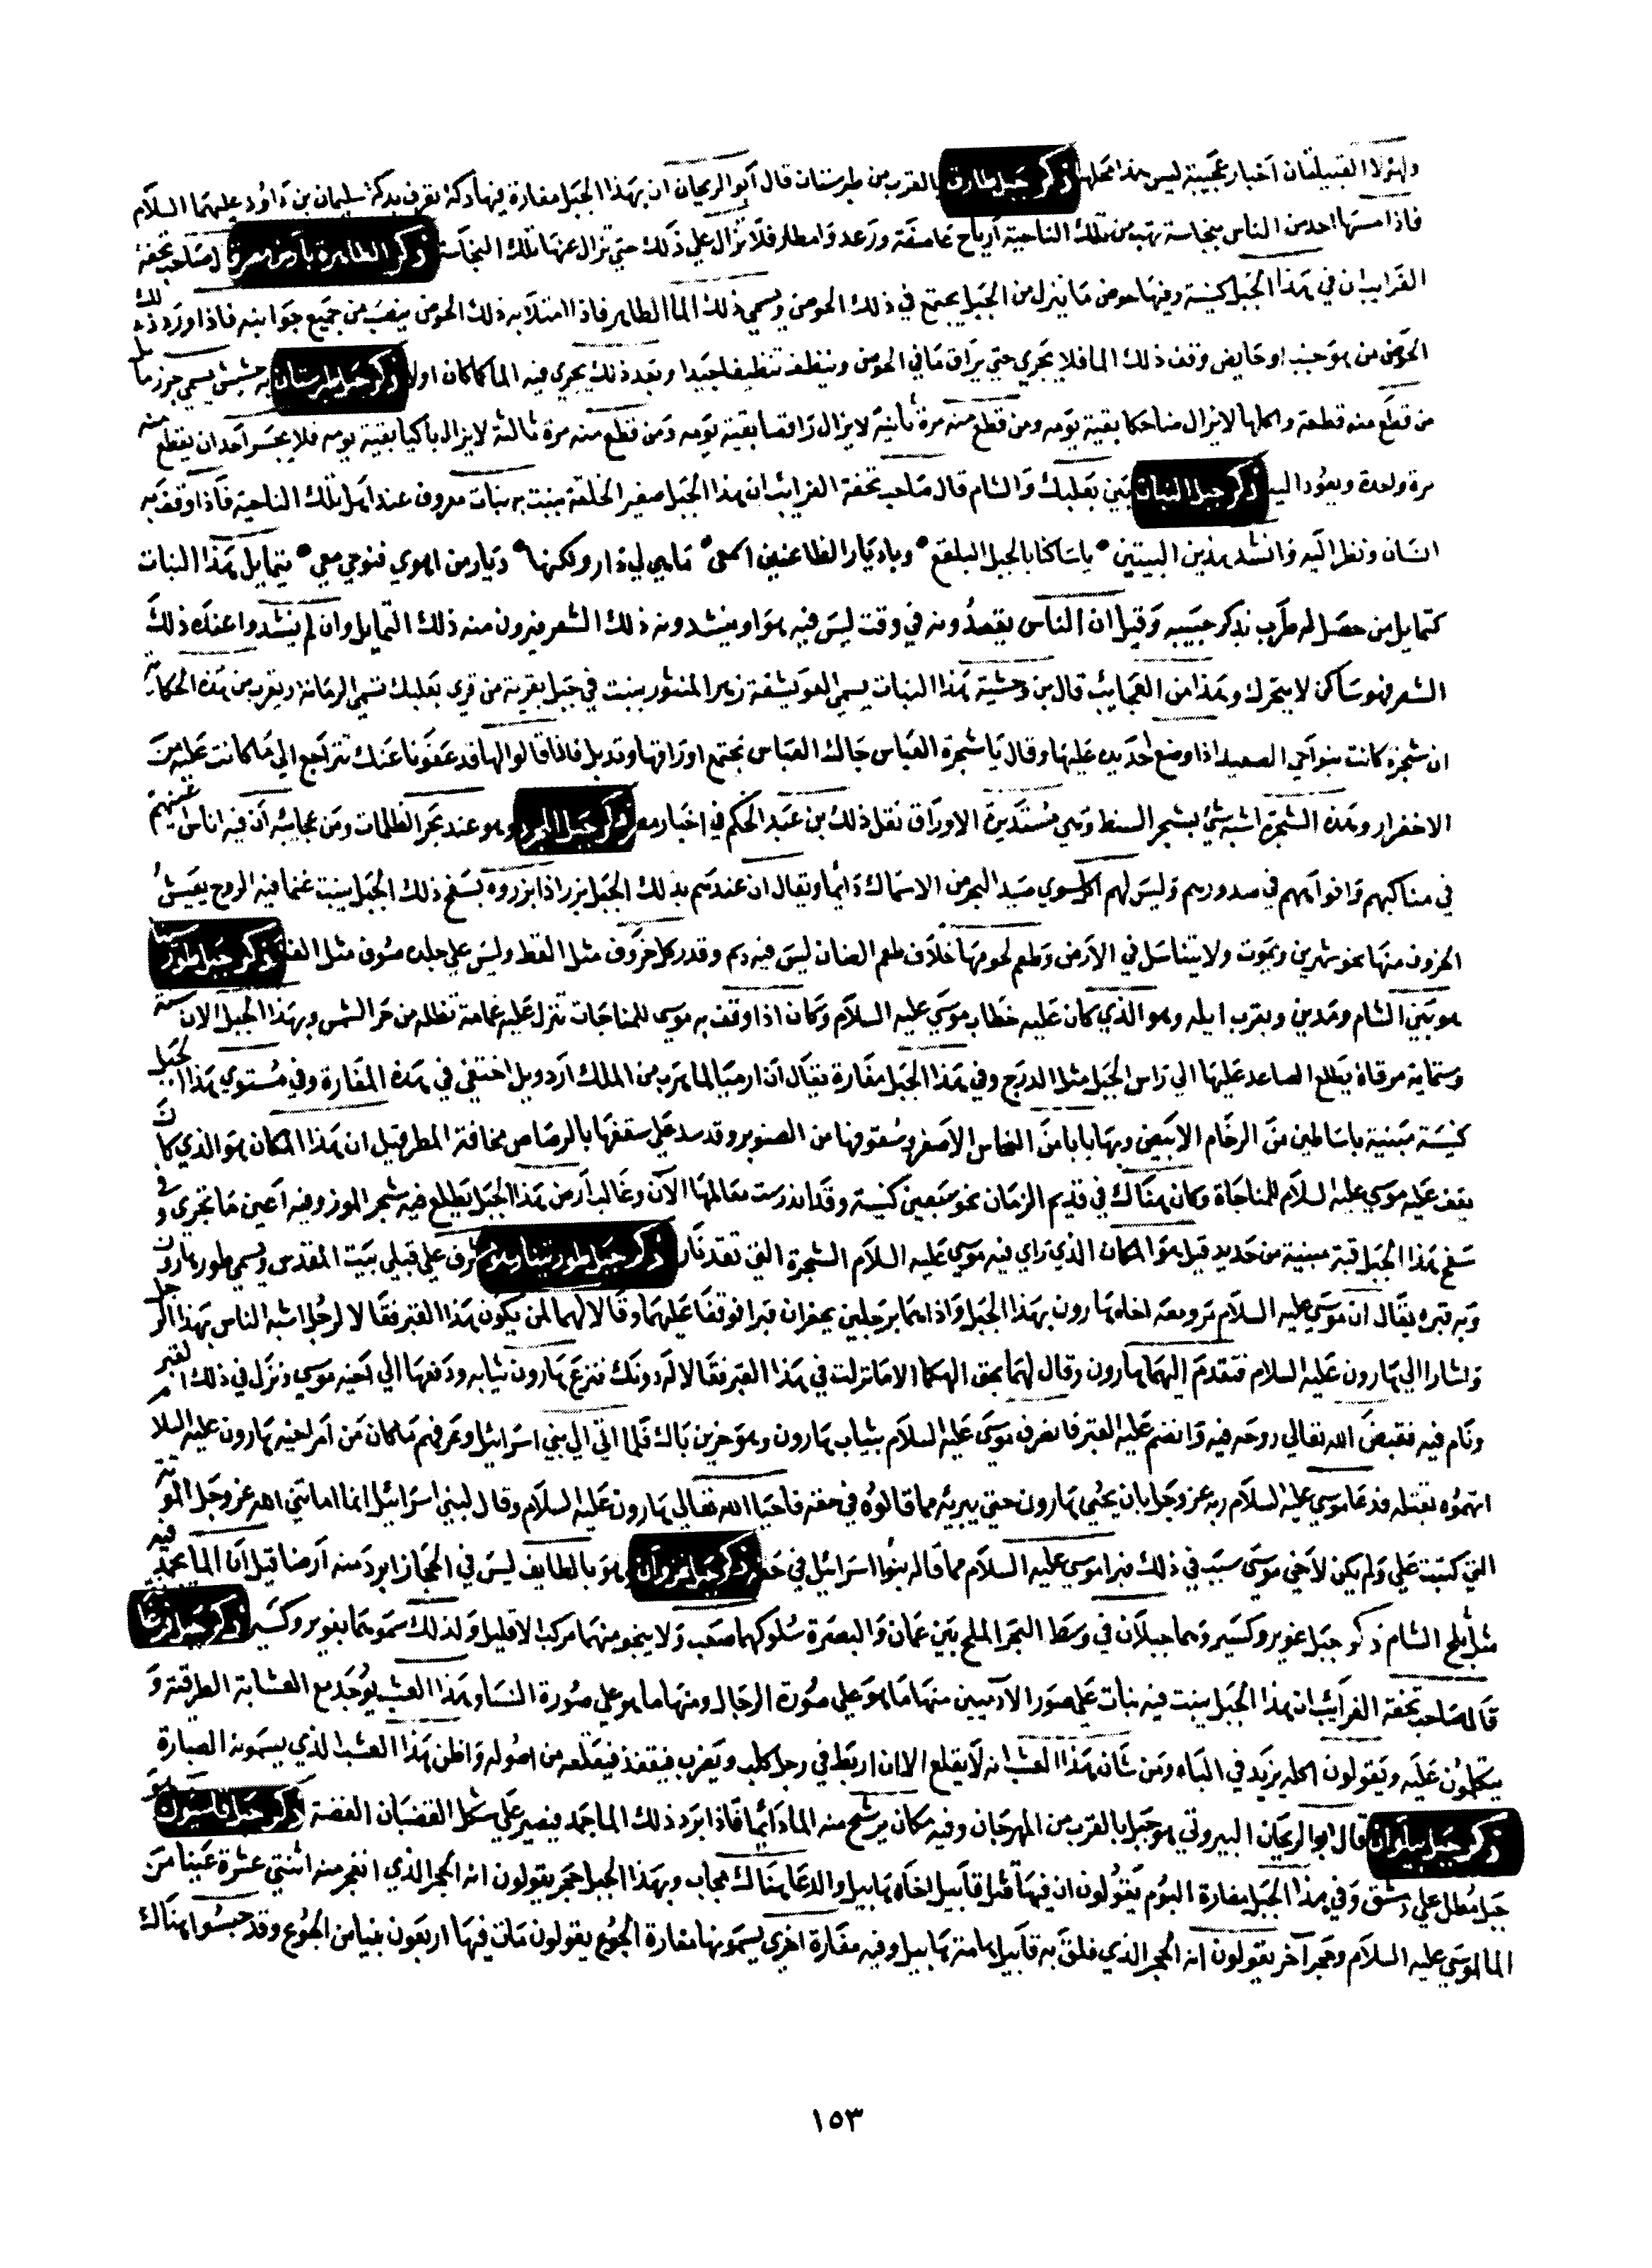 ولهؤلا القبيلتان أخبار عجيبة ليس هذا محلها ذكر جبل طارق بالقرب من طبرستان قال أبو الريحان ان بهذا الجبل مغارة فيها دكة تعرف بدكة سليمان بن داود عليهما السلام
فاذا مسها احد من الناس بنجاسة تهب من تلك الناحية أرياح عاصفة ورعد وامطار فلا تزال علي ذلك حتي تزال عنها تلك النجاسة ذكر الطاهرة بأرض مصر قال صاحب تحفة
الغرايب ان في هذا الجبل كنيسة وفيها حوض ما ينزل من الجبل يجتمع في ذلك الحوض ويسمي ذلك الما الطاهر فاذا امتلأ به ذلك الحوض ينصب من جميع جوانبه فاذا ورد ذلك
الحوض من هو جنب او حايض وقف ذلك الما فلا يجري حتي يراق ما في الحوض وينظف تنظيفا جيدا وبعد ذلك يجري فيه الما كما كان اولا ذكر جبل طبرستان به حشيش يسمي جوز ماثل
من قطع منه قطعة واكلها لا يزال ضاحكا بقية يومه ومن قطع منه مرة ثانية لا يزال راقصا بقية يومه ومن قطع منه مرة ثالثة لا يزال باكيا بقية يومه فلا يجسر أحد ان يقطع منه
مرة واحدة ويعود اليه ذكر جبل النبات بين بعلبك والشام قال صاحب تحفة الغرائب ان هذا الجبل صغير الخلقة ينبت به نبات معروف عند اهل تلك الناحية فاذا وقف به
انسان ونظر اليه وانشد هذين البيتين • ياساكنا بالجبل البلقع • وياديار الظاعنين اسمعي • ماهي لي دار ولكنها • ديار من اهوي فنوحي معي • يتمايل هذا النبات
كتمايل من حصل له طرب بذكر حبيبه وقيل ان الناس يقصدونه في وقت ليس فيه هوا وينشدونه ذلك الشعر فيرون منه ذلك التمايل وان لم ينشدوا عنده ذلك
الشعر فهو ساكن لا يتحرك وهذا من العجايب قال بن وحشية هذا النبات يسمي العويشقة زهر المنثور ينبت في جبل بقرية من قري بعلبك تسمي الرمانة ويقرب من هذه الحكاية
ان شجرة كانت بنواحي الصعيد اذا وضع احد يده عليها وقال يا شجرة العباس جاك العباس تجتمع اوراقها وتدبل فاذا قالوا لها قد عفونا عنك تتراجع الي ما كانت عليه من
الاخضرار وهذه الشجرة اشبه شئ بشجر السنط وهي مستديرة الاوراق نقل ذلك بن عبد الحكم في اخبار مصر ذكر جبل وهو عند بحر الظلمات ومن عجائبه أن فيه اناس اعينهم
في مناكبهم وافواههم في صدورهم وليس لهم اكل سوي صيد البحر من الاسماك دائما ويقال ان عندهم بذلك الجبل بزر اذا بزروه بسفح ذلك الجبل ينبت غنما فيه الروح يعيش
الخروف منها نحو شهرين ويموت ولا يتناسل في الأرض وطعم لحومها خلاف طعم الضان ليس فيه دسم وقدر كل خروف مثل القط وليس علي جلده صوف مثل الغنم ذكر جبل طور سينا
هو بين الشام ومدين وبقرب ايله وهو الذي كان عليه خطاب موسي عليه السلام وكان اذا وقف به موسي للمناجات تنزل عليه غمامة تظله من حر الشمس وبهذا الجبل الان ستة
وستماية مرقاة يطلع الصاعد عليها الي راس الجبل مثل الدرج وفي هذا الجبل مغارة يقال أن ارميا لما هرب من الملك اردويل اختفي في هذه المغارة وفي مستوي هذا الجبل
كنيسة مبنية باساطين من الرخام الابيض وبها بابا من النحاس الأصفر وسقوفها من الصنوبر وقد سد علي سقفها بالرصاص مخافة المطر قيل ان هذا المكان هو الذي كان
يقف عليه موسي عليه السلام للمناجاة وكان هناك في قديم الزمان نحو سبعين كنيسة وقد اندرست معالمها الآن وغالب أرض هذا الجبل يطلع فيه شجر الموز وفيه اعين ما تجري وفي
سفح هذا الجبل قبة مبنية من حديد قيل هو المكان الذي راي فيه موسي عليه السلام الشجرة التي تقد نار ذكر جبل طور تينا وهو مشرف علي قبلي بيت المقدس ويسمي طور هارون
وبه قبره يقال ان موسي عليه السلام مر ومعه اخاه هارون بهذا الجبل واذا هما برجلين يحفران قبرا فوقفا عليهما وقالا لهما لمن يكون هذا القبر فقالا لرجل اشبه الناس بهذا الرجل
واشارا الي هارون عليه السلام فتقدم اليهما هارون وقال لهما بحق الهكما الا ما نزلت في هذا القبر فقالا له دونك فنزع هارون ثيابه ودفعها الي اخيه موسي ونزل في ذلك القبر
ونام فيه فقبض الله تعالي روحه فيه وانضم عليه القبر فانصرف موسي عليه السلام بثياب هارون وهو حزين باك فلما اتي الي بني اسرائيل وعرفهم ماكان من أمر اخيه هارون عليه السلام
اتهموه بقتله فدعا موسي عليه السلام ربه عز وجل بان يحيي هارون حتي يبريه مما قالوه في حقه فاحيا الله تعالي هارون عليه السلام وقال لبني اسرائيل انما اماتني الله عز وجل الموتة
التي كتبت علي ولم يكن لأخي موسي سبب في ذلك فبرا موسي عليه السلام مما قاله بنوا اسرائيل في حقه ذكر جبل غزوان وهو بالطايف ليس في الحجاز ابرد منه أرضا قيل أن الما يجمد فيه
مثل ثلج الشام ذكر جبل عوير وكسير وهما جبلان في وسط البحر الملح بين عمان والبصرة سلوكهما صعب ولا ينجو منهما مركب الا قليل ولذلك سموهما بعوير وكسير ذكر جبل فرغانة
قال صاحب تحفة الغرايب ان هذا الجبل ينبت فيه نبات علي صور الآدميين منها ما هو علي صورة الرجال ومنها ما هو علي صورة النسا وهذا العشب يوجد مع العشابة الطرقية و
يتكلمون عليه ويقولون اكله يزيد في الباه ومن شان هذا العشب انه لا يقلع الا ان اربط في رجل كلب ويضرب فيقفذ فيقلعه من اصوله واظن هذا العشب الذي يسمونه الصبارة
ذكر جبل بيلوان قال ابو الريحان البيروتي هو جبل بالقرب من المهرجان وفيه مكان يرشح منه الما دائما فاذا برد ذلك الما جمد فيصير علي شكل القضبان الفضة ذكر جبل قاسيون هو
جبل مطل علي دمشق وفي هذا الجبل مغارة البوم يقولون ان فيها قتل قابيل اخاه هابيل والدعا هناك مجاب وبهذا الجبل حجر يقولون انه الحجر الذي انفجر منه اثنتي عشرة عينا من
الما لموسي عليه السلام وحجر آخر يقولون انه الحجر الذي فلق به قابيل هامة هابيل وفيه مغارة اخري يسمونها مغارة الجوع يقولون مات فيها اربعون نبيا من الجوع وقد حبسوا هناك
١٥٣